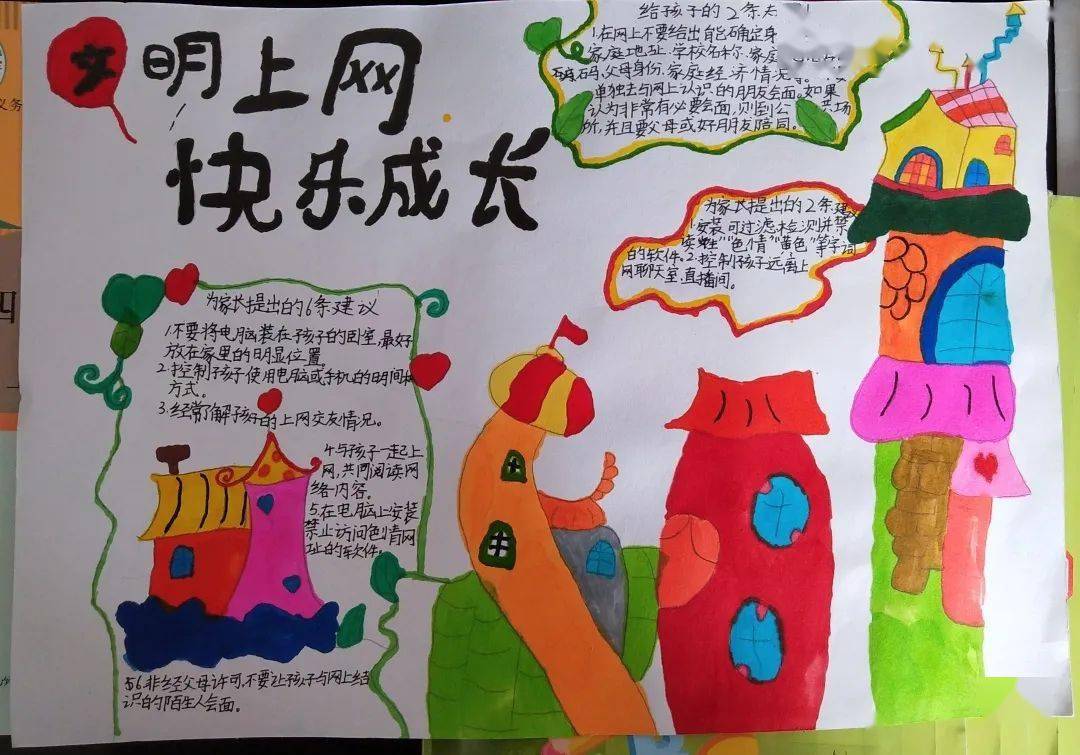 文明上网
快乐成长
给孩子的2条
1.在网上不要给出能确定身
家庭地址、学校名称、家庭
码、父母身份、家庭经济情况
单独去与网上认识的朋友会面。如果
认为非常有必要会面,则到公
场
所,并且要父母或好朋友陪同。
为家长提出的2条建
1.安装可过滤检测并禁
读 "色情""黄色"等字词
的软件。2.控制孩子远离上
网聊天室.直播间。
为家长提出的6条建议
1.不要将电脑装在孩子的卧室,最好
放在家里的明显位置
2.控制孩子使用电脑或手机的时间和
方式。
3.经常了解孩子的上网交友情况。
4.与孩子一起上
网,共同阅读网
络内容。
5.在电脑上安装
禁止访问色情网
址的软件。
6.非经父母许可,不要让孩子与网上结
识的陌生人会面。
四